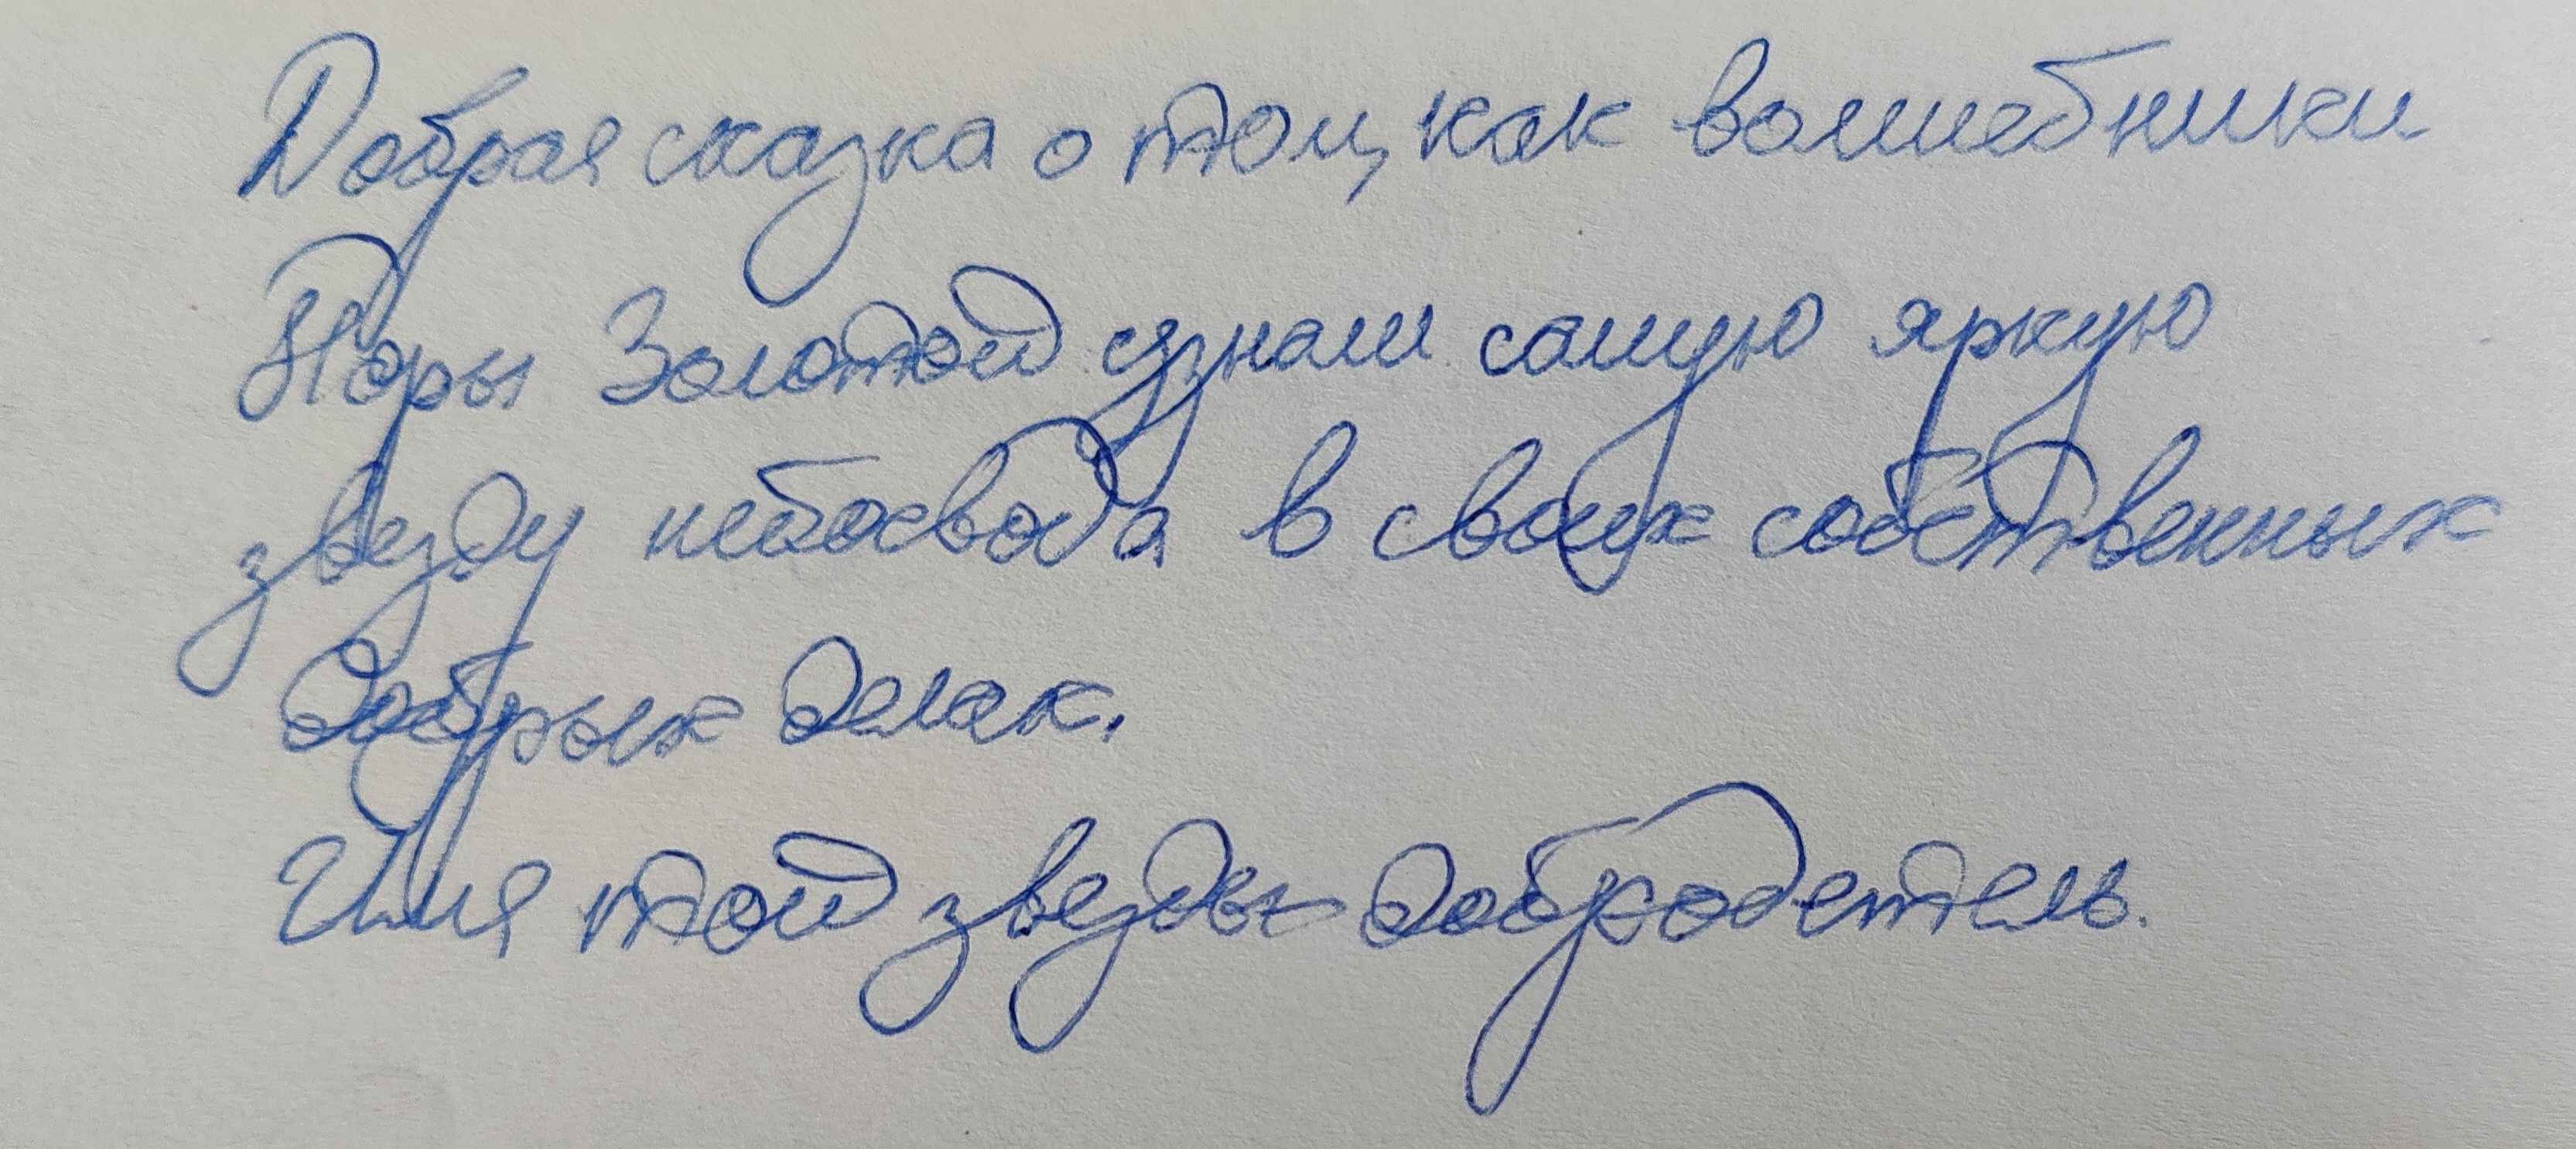 Добрая сказка о том, как волшебники
Поры Золотой узнали самую яркую
звезду небосвода в своих собственных
добрых делах.
Имя той звезды добродетель.